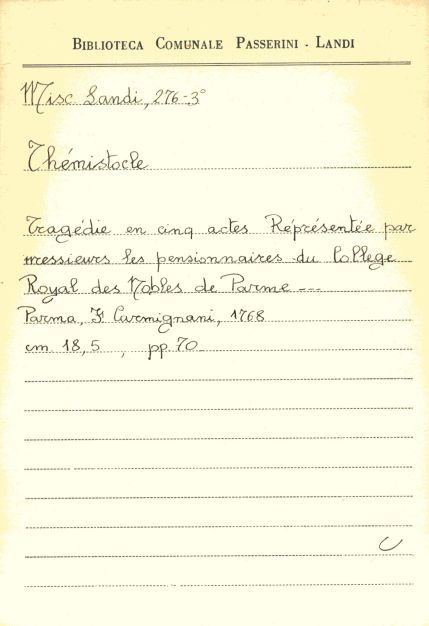 BIBLIOTECA COMUNALE PASSERINI - LANDI
Misc Landi, 276-3°
Thémistocle
Tragédie en cinq actes Réprésentée par
messieurs les pensionnaires du College
Royal des Nobles de Parme ---
Parma, F. Carmignani, 1768
cm 18,5 , pp. 70